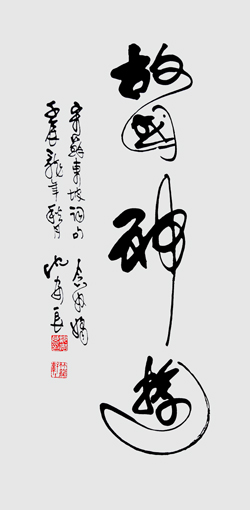 故國神遊
宋蘇東坡詞句 念奴嬌
壬辰龍年秋月 沈安良